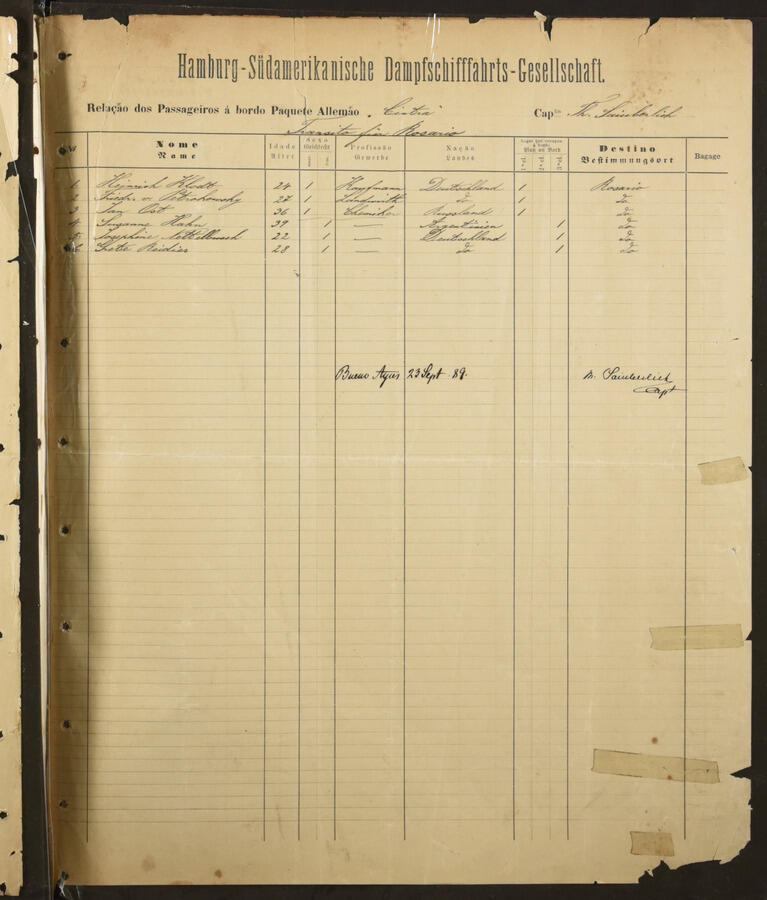 Hamburg-Südamerikanische Dampfschifffahrts-Gesellschaft.
Relação dos Passageiros á bordo Paquete Allemão "Cintra" Cap Th. Sauberlich
Transito für Rosario
No Nome Name Idade Alter Sexo Geschlecht Profissão Gewerbe Nação Landes 1a cl. 2a cl. 3a cl. Destino Bestimmungsort Bagage
1 Heinrich Klodt 24 1 Kaufmann Deutschland 1 Rosario
2 Friedr. v. Petrokowsky 27 1 Landwirth do 1 do
3 Jan Ost 36 1 Chemiker Russland 1 do
4 Suzanne Hahn 39 1 — Argentinien 1 do
5 Josephine 22 1 — Deutschland 1 do
6 28 1 — do 1 do
Buenos Ayres 23 Sept 89. Sauberlich
Capt